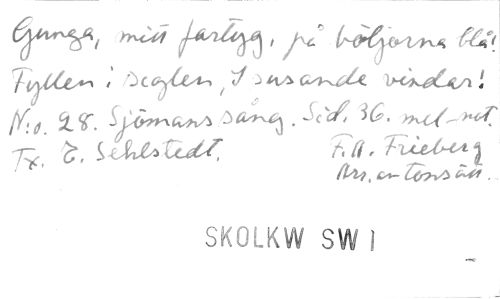 Gunga, mitt fartyg, på böljorna blå!
Fyllen i seglen, I susande vindar!
N:o. 28. Sjömanssång. Sid. 36. mel-not.
Tx. E. Sehlstedt. F.A. Frieberg
Arr. av tonsätt.
SKOLKW SW I